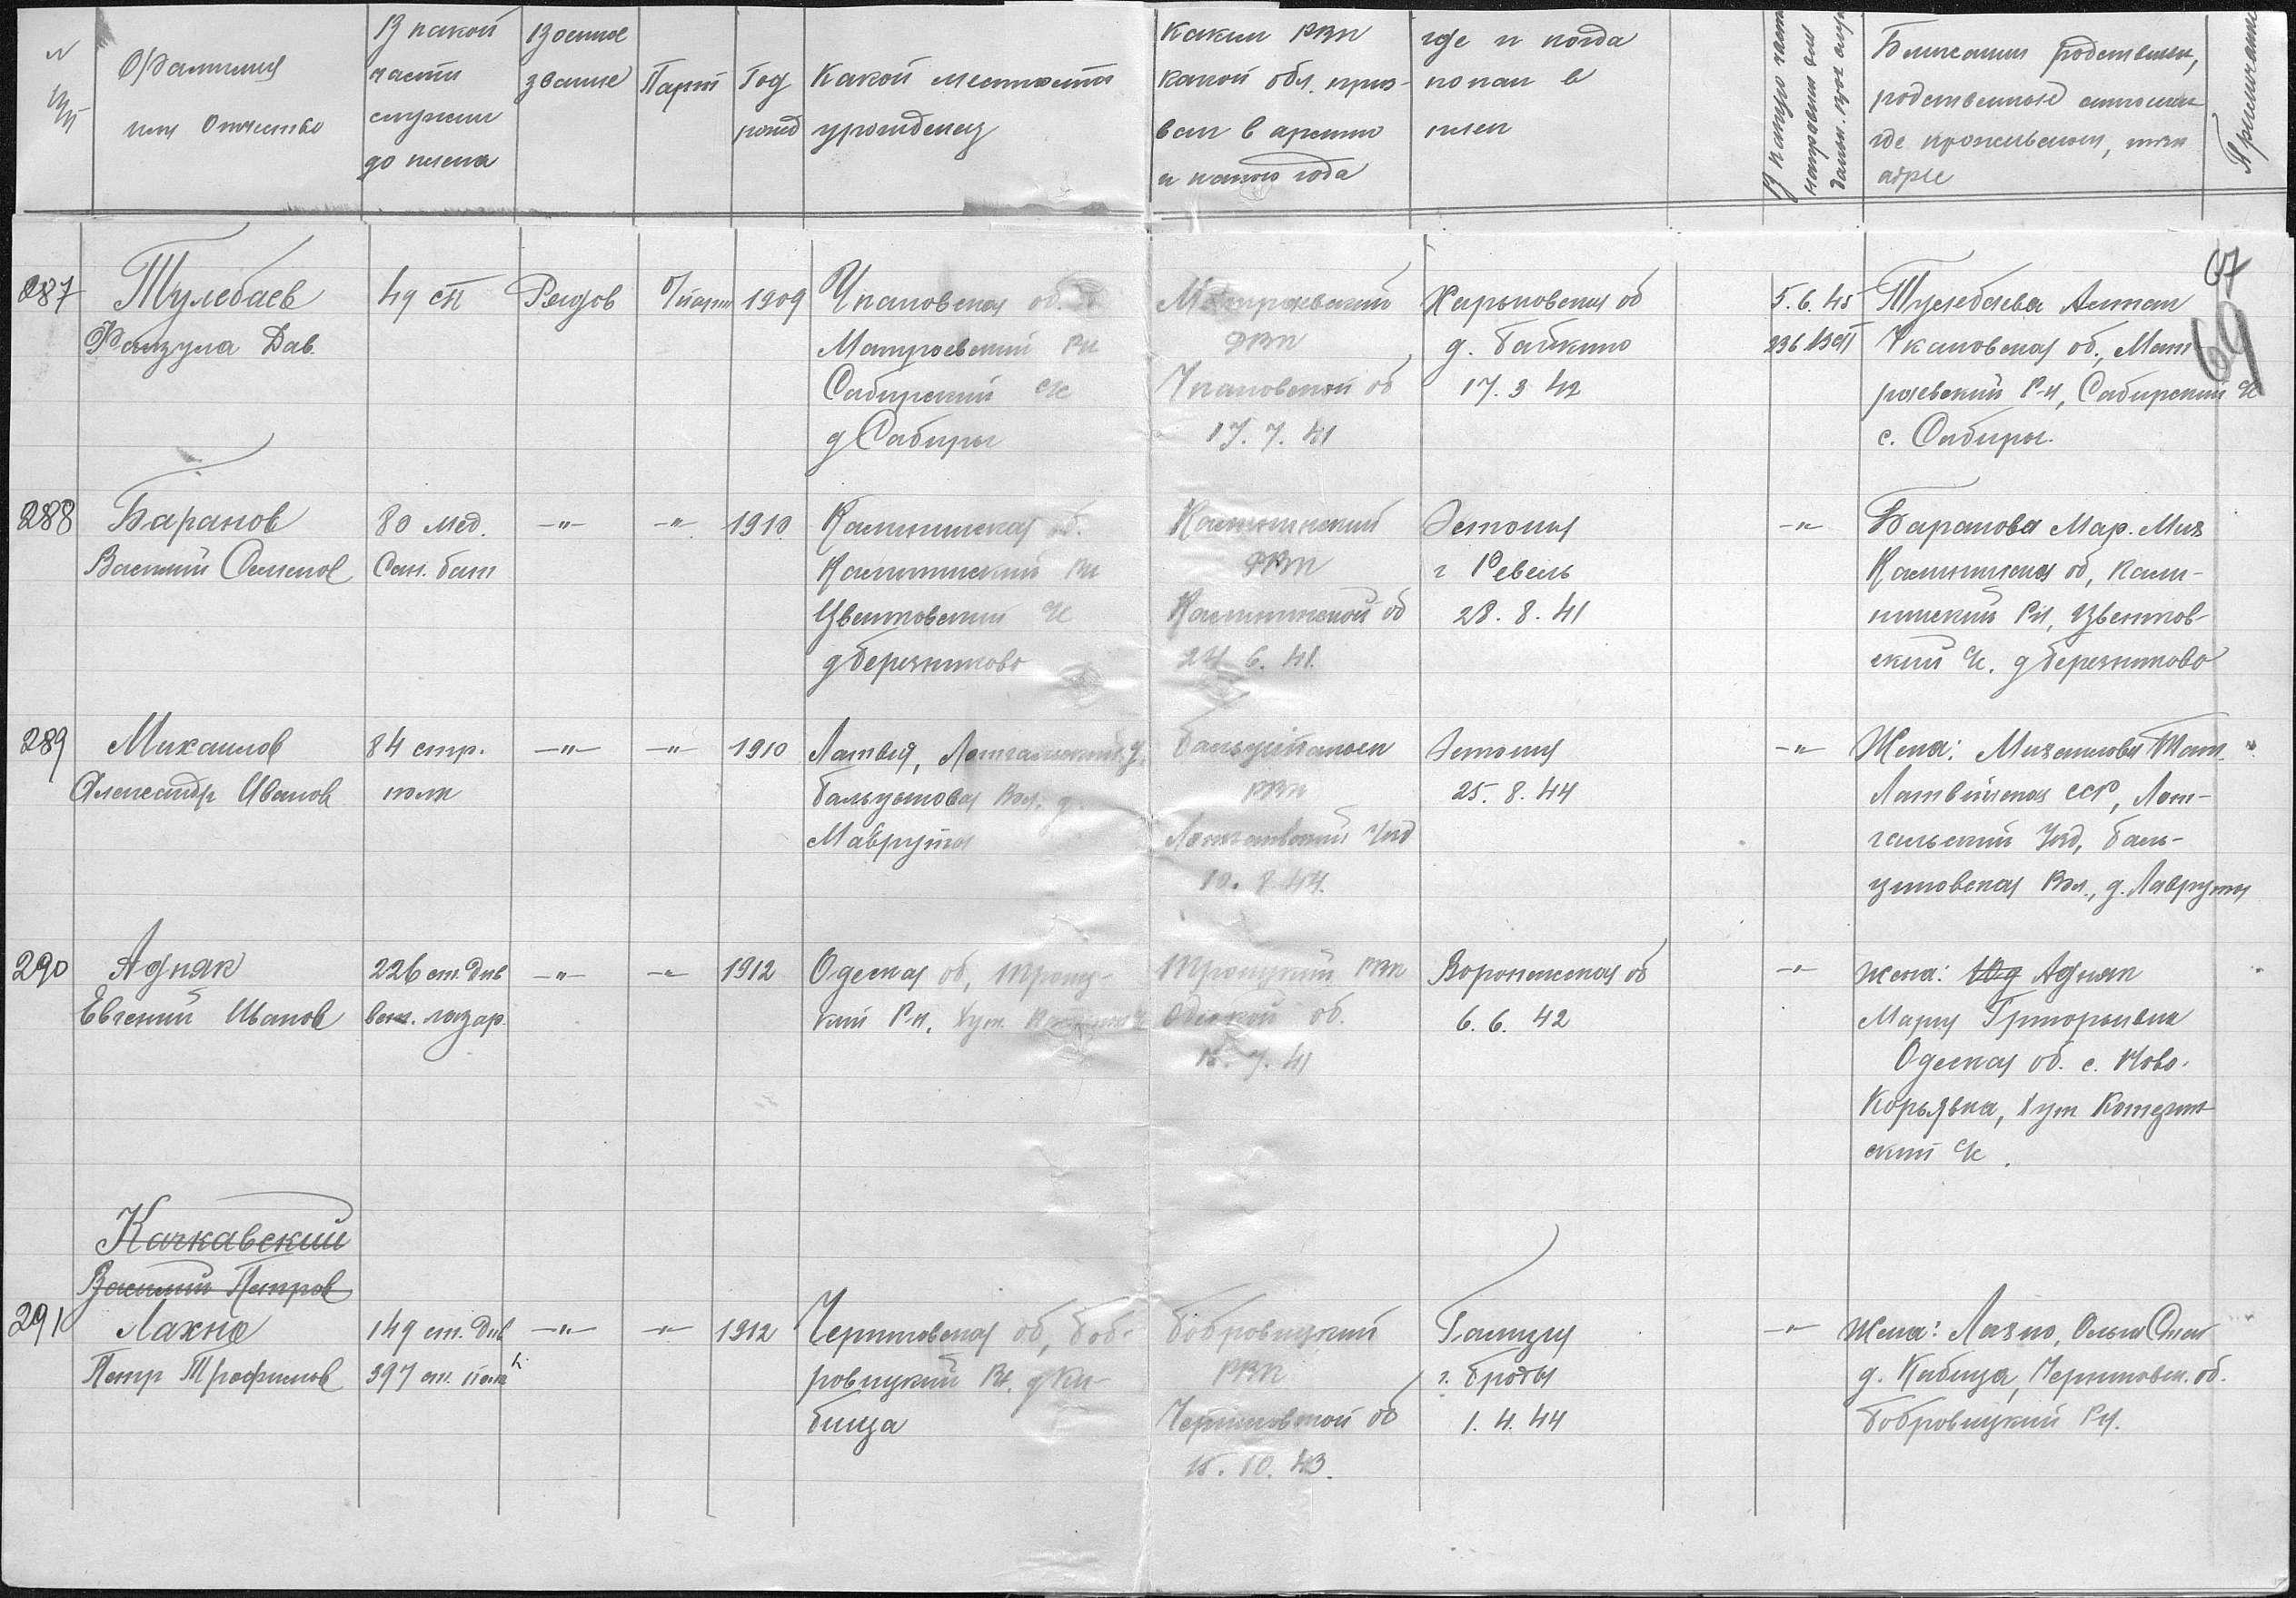 N
пп
Фамилия
имя Отчество
В какой
части
служил
до плена
Военное
звание
Парт
Год
рожд
Какой местности
урожденец
Каким РВК
какой обл. приз-
ван в армию
и какого года
где и когда
попал в
плен
В какую часть
направлен для
дальн.
Ближайшие родствен,
родственные отношен
где проживают, точн
адрес
Примечание
67
69
287
Тулебаев
Файзула Дав.
49 сп
Рядов
б/парт
1909
Чкаловская об.
Матраевский Рн
Сабирский с/с
д Сабиры
Матраевский
РВК
Чкаловской об
17. 7. 41
Харьковская об
д. Байкино
17. 3 42
5. 6. 45
236 АЗСП
Тулебаева Алтан
Чкаловская об., Мат
раевский Р-н, Сабирский с/с
с. Сабиры.
288
Баранов
Василий Семенов
80 мед.
Сан. бат
-"-
-"-
1910
Калининская об.
Калининский Рн
Цветковский с/с
д Березниково
Калининский
РВК
Калининской об
24 6. 41.
Эстония
г Ревель
28. 8. 41
-"-
Баранова Мар. Мих
Калининская об, Кали-
нинский Рн, Цветков-
ский с/с. д Березниково
289
Михаилов
Александр Иванов
84 стр.
полк
-"-
-"-
1910
Латвия, Латгальский у.
Бальуновая Вол. д.
Лаврути
РВК
Латгальский уезд
10. 8. 44.
Эстония
25. 8. 44
-"-
Жена: Михаилова Тат.
Латвийская ССР, Лат-
гальский уезд, Баль-
уновская Вол., д. Лаврути
290
Адняк
Евгений Иванов
226 ст. див
вет. лазар.
-"-
-"-
1912
Одеская об, Троиц-
кий Р-н, Хут.
Троицкий РВК
Одеской об.
15. 7. 41
Воронежская об
6. 6. 42
-"-
жена: Адняк
Мария Григорьевна
Одеская об. с. Ново-
Корьявка, Хут Котезин-
ский с/с.
Качкавский
Василий Петров
291
Лахно
Петр Трофимов
149 ст. див
397 ст. полк
-"-
-"-
1912
Черниговская об, Боб-
ровицкий Рн. д Ка-
бища
Бобровицкий
РВК
Черниговской об
15. 10. 43.
Галиция
г. Броды
1. 4. 44
-"-
Жена: Лахно, Ольга Степ
д. Кабища, Черниговск. об.
Бобровицкий Рн.